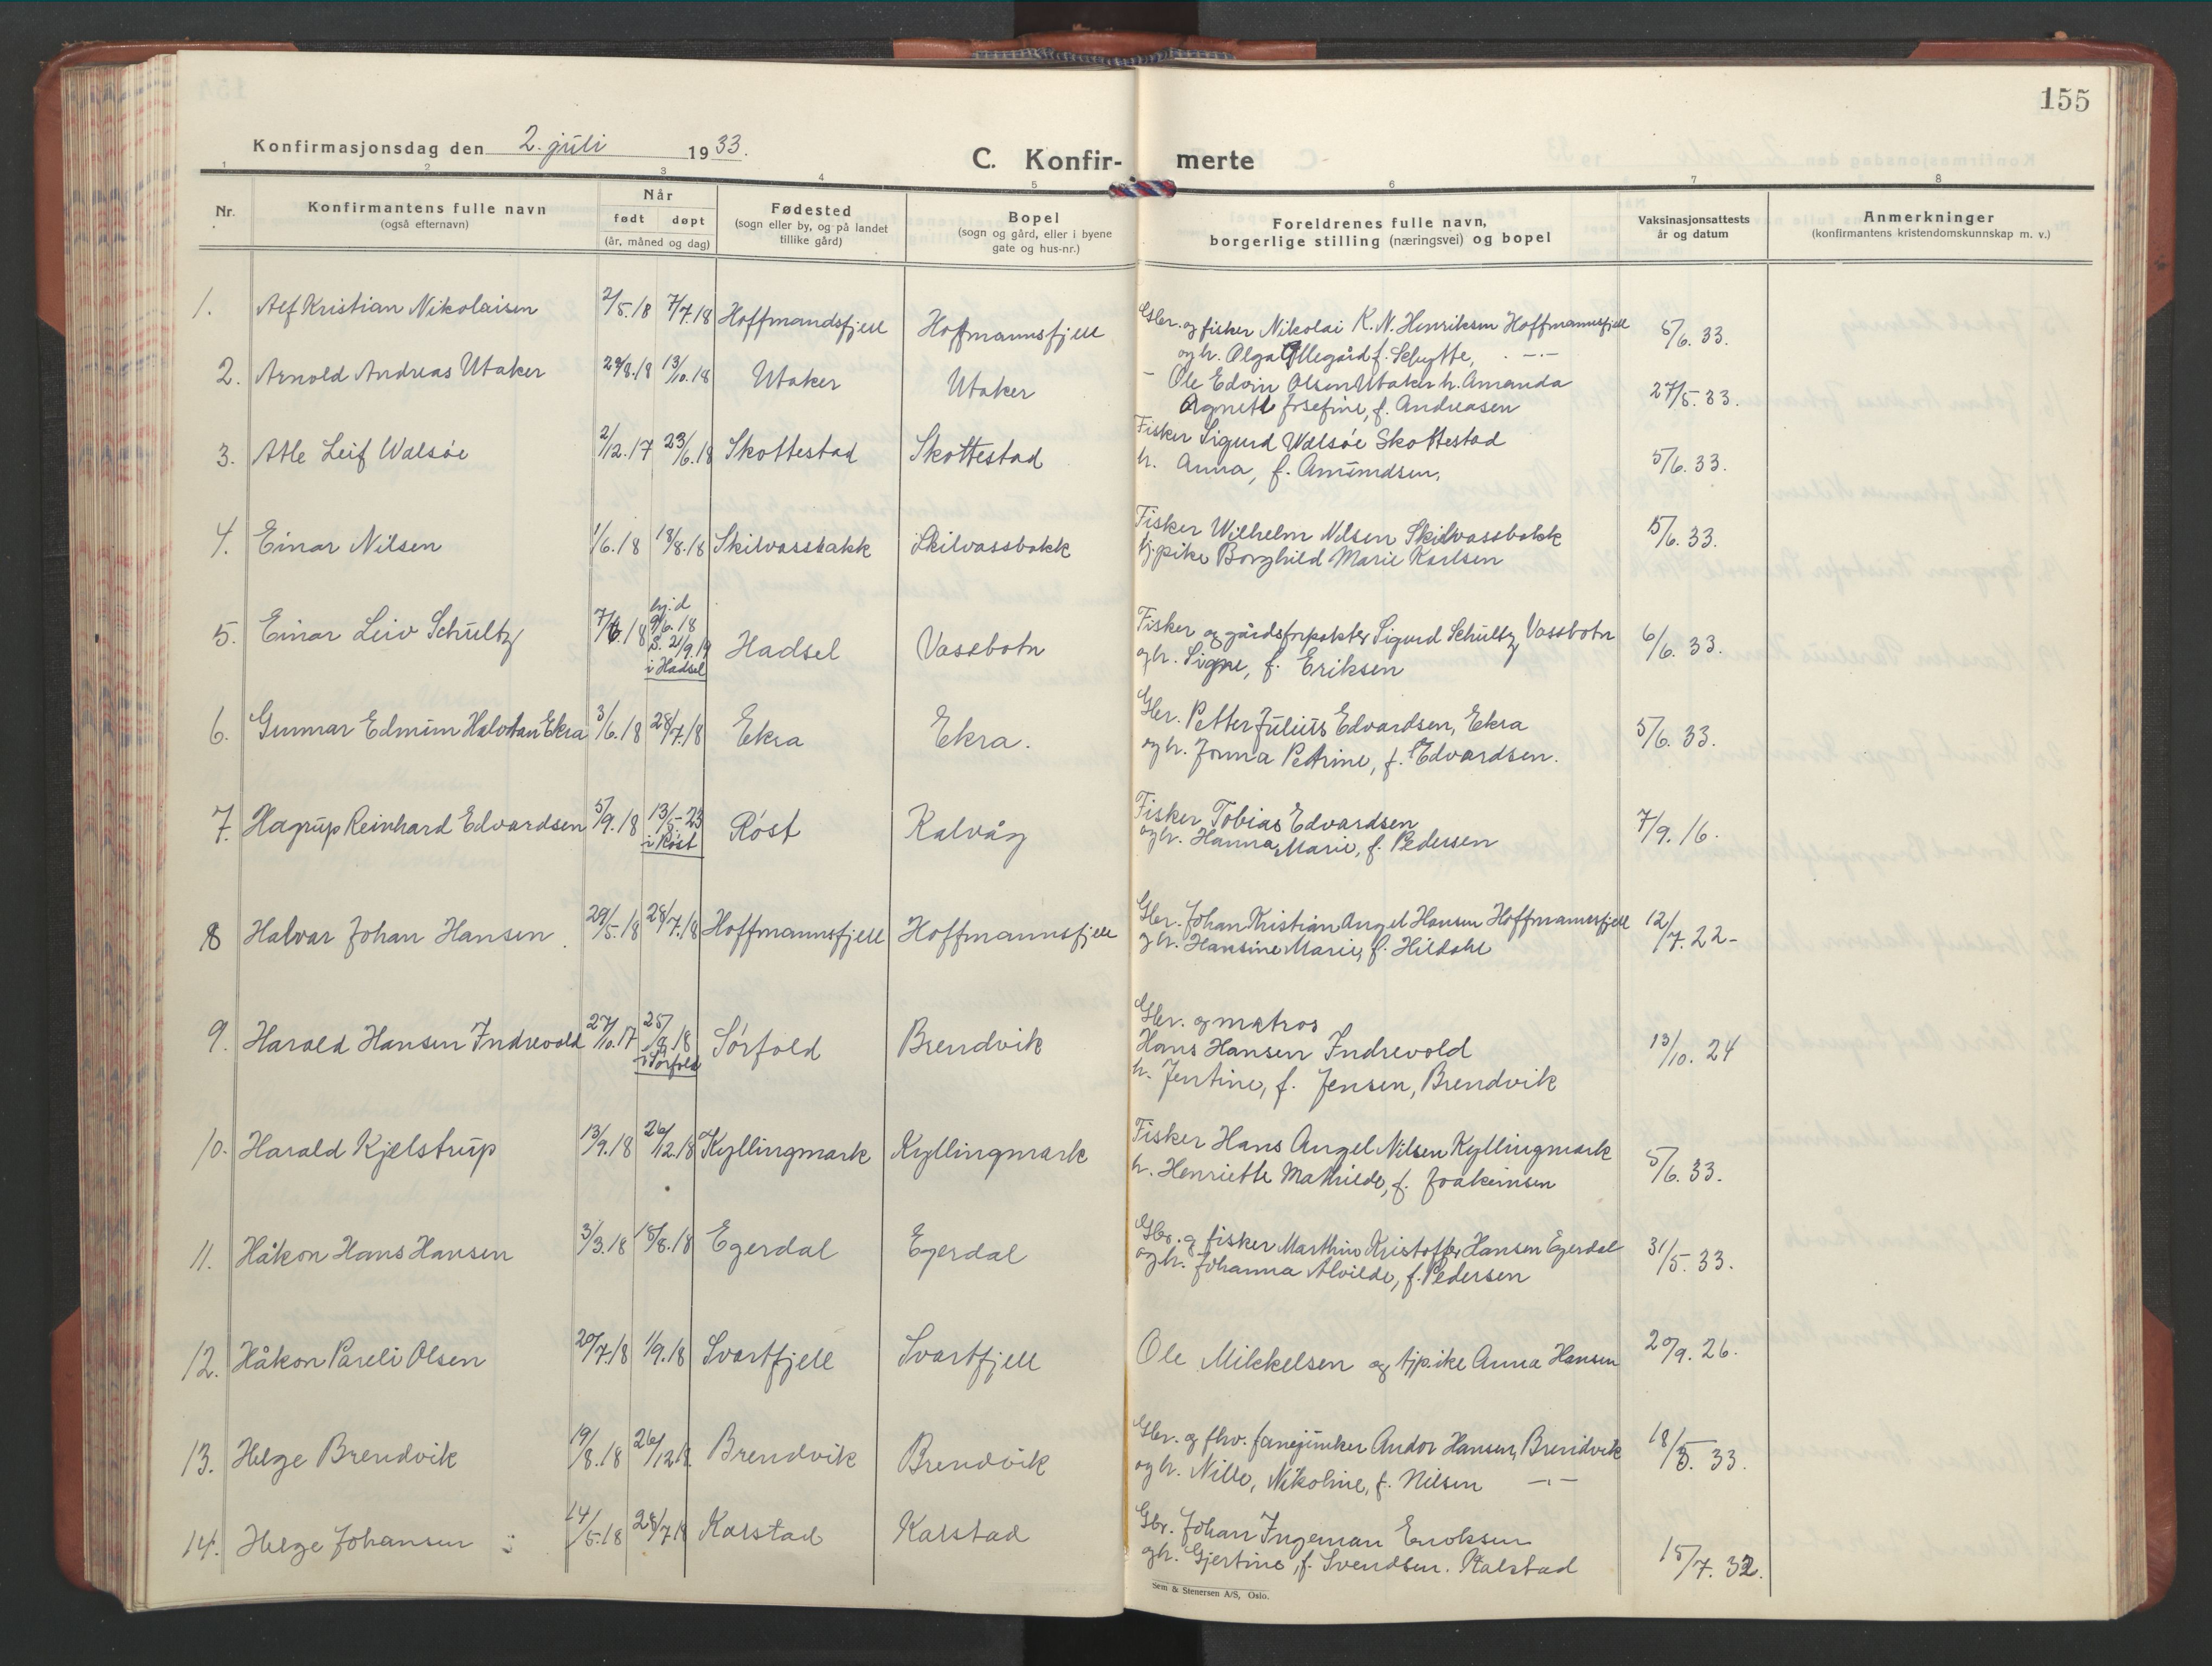 155
Konfirmasjonsdag den 2. juli 1933.
C. Konfir- merte
1 2 3 4 5 6 7 8
Nr.
Konfirmantens fulle navn
(også efternavn)
Når
født døpt
(år, måned og dag)
Fødested
(sogn eller by, og på landet
tillike gård)
Bopel
(sogn og gård, eller i byene
gate og hus-nr.)
Foreldrenes fulle navn,
borgerlige stilling (næringsvei) og bopel
Vaksinasjonsattests
år og datum
Anmerkninger
(konfirmantens kristendomskunnskap m. v.)
1. Alf Kristian Nikolaisen 2/5.18 7/7.18 Hoffmandsfjell Hoffmannsfjell Gbr. og fisker Nikolai K. N. Henriksen Hoffmannsfjell 5/6. 33.
og h. Olga Ellegård f. Schytte, -.-
2. Arnold Andreas Utaker 29/8.18 13/10.18 Utaker Utaker - Ole Edvin Olsen Utaker h. Amanda 27/5. 33.
Agnete Josefine, f. Andreasen
3. Atle Leif Walsøe 2/12.17 23/6.18 Skottestad Skottestad Fisker Sigurd Walsøe Skottestad 5/6. 33.
h. Anna, f. Amundsen,
4. Einar Nilsen 1/6.18 18/8.18 Skilvassbakk Skilvassbakk Fisker Wilhelm Nilsen Skilvassbakk 5/6. 33.
tj.pike Borghild Marie Karlsen
5. Einar Leiv Schultz 7/6.18 hj.d 9/6.18 S. 21/9.19 i Hadsel Hadsel Vassbotn Fisker og gårdsforpakter Sigurd Schultz Vassbotn 6/6. 33.
og h. Signe, f. Eriksen
6. Gunnar Edmun Halvdan Ekra 3/6.18 28/7.18 Ekra Ekra. Gbr. Petter Julius Edvardsen, Ekra 5/6. 33.
og h. Jonna Petrine, f. Edvardsen.
7. Hagrup Reinhard Edvardsen 5/9.18 13/5-23 i Røst Røst Kalvåg Fisker Tobias Edvardsen 7/9. 16.
og h. Hanna Marie, f. Pedersen
8 Halvar Johan Hansen 29/5.18 28/7.18 Hoffmannsfjell Hoffmannsfjell Gbr. Johan Kristian Angel Hansen Hoffmannsfjell 12/7. 22-
og h. Hansine Marie, f. Hildahl
9. Harald Hansen Indrevold 27/10.17 25/8.18 i Sørfold Sørfold Brendvik Gbr. og matros
Hans Hansen Indrevold 13/10. 24
h. Jentine, f. Jensen, Brendvik
10. Harald Kjelstrup 13/9.18 26/12.18 Kyllingmark Kyllingmark Fisker Hans Angel Nilsen Kyllingmark 5/6. 33.
h. Henriette Mathilde, f. Joakimsen
11. Håkon Hans Hansen 3/3.18 18/8.18 Egerdal Egerdal Gbr. og fisker Marthin Kristoffer Hansen Egerdal 31/5. 33.
og h. Johanna Alvilde, f. Pedersen
12. Håkon Pareli Olsen 20/7.18 1/9.18 Svartfjell Svartfjell Ole Mikkelsen og tjp.ike Anna Hansen 20/9. 26.
13. Helge Brendvik 19/8.18 26/12.18 Brendvik Brendvik Gbr. og fhv. fanejunker Andor Hansen, Brendvik 18/5. 33.
og h. Nille, Nikoline, f. Nilsen -.-
14. Helge Johansen 14/5.18 28/7.18 Karstad Karstad Gbr. Johan Ingeman Enoksen
og h. Gjertine, f. Svendsen. Kalstad 15/7. 32.
Sem & Stenersen A/S, Oslo.